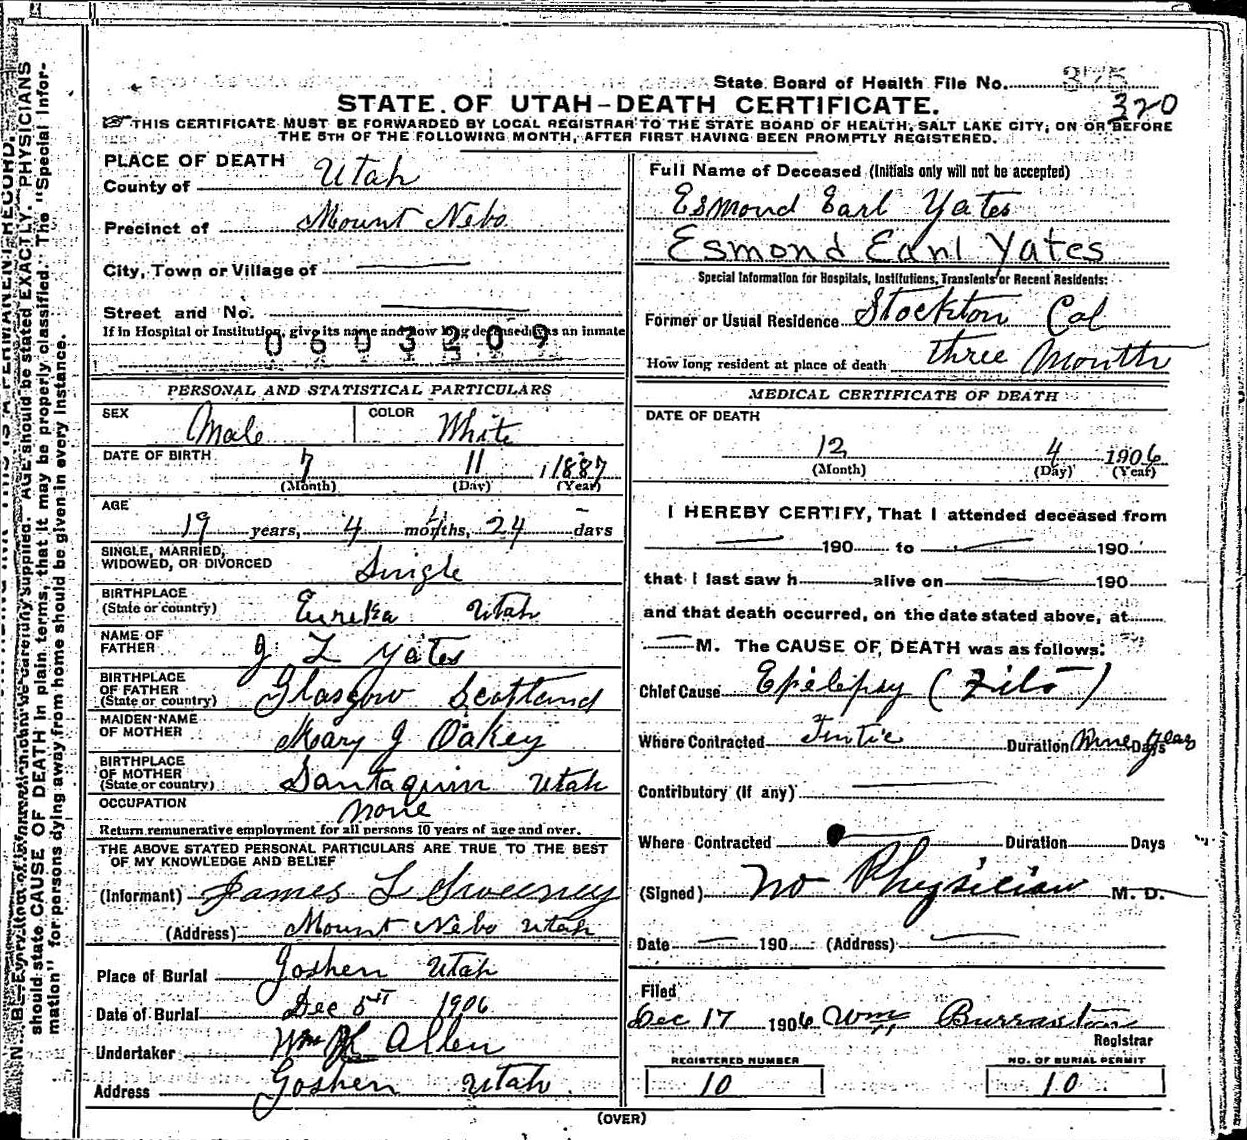 State Board of Health File No. 375
320
STATE OF UTAH-DEATH CERTIFICATE.
THIS CERTIFICATE MUST BE FORWARDED BY LOCAL REGISTRAR TO THE STATE BOARD OF HEALTH, SALT LAKE CITY, ON OR BEFORE
THE 5TH OF THE FOLLOWING MONTH, AFTER FIRST HAVING BEEN PROMPTLY REGISTERED.
PLACE OF DEATH
County of Utah
Precinct of Mount Nebo
City, Town or Village of
Street and No.
If in Hospital or Institution, give its name and how long deceased was an inmate
0603209
PERSONAL AND STATISTICAL PARTICULARS
SEX Male COLOR White
DATE OF BIRTH
7 11 1887
(Month) (Day) (Year)
AGE
19 years, 4 months, 24 days
SINGLE, MARRIED,
WIDOWED, OR DIVORCED Single
BIRTHPLACE
(State or country) Eureka Utah
NAME OF
FATHER J L Yates
BIRTHPLACE
OF FATHER
(State or country) Glasgow Scotland
MAIDEN NAME
OF MOTHER Mary J Oakey
BIRTHPLACE
OF MOTHER
(State or country) Santaquin Utah
OCCUPATION none
Return remunerative employment for all persons 10 years of age and over.
THE ABOVE STATED PERSONAL PARTICULARS ARE TRUE TO THE BEST
OF MY KNOWLEDGE AND BELIEF
(Informant) James L Sweeney
(Address) Mount Nebo Utah
Place of Burial Goshen Utah
Date of Burial Dec 5 1906
Undertaker Wm Allen
Address Goshen Utah
Full Name of Deceased (Initials only will not be accepted)
Esmond Earl Yates
Esmond Earl Yates
Special Information for Hospitals, Institutions, Transients or Recent Residents:
Former or Usual Residence Stockton Cal
How long resident at place of death three Months
MEDICAL CERTIFICATE OF DEATH
DATE OF DEATH
12 4 1906
(Month) (Day) (Year)
I HEREBY CERTIFY, That I attended deceased from
190 to 190
that I last saw h alive on 190
and that death occurred, on the date stated above, at
M. The CAUSE OF DEATH was as follows:
Chief Cause Epilepsy (Fits)
Where Contracted Tintic Duration Nine Days Years
Contributory (If any)
Where Contracted Duration Days
(Signed) No Physician M. D.
Date 190 (Address)
Filed
Dec 17 1906 Wm Burraston
Registrar
REGISTERED NUMBER
10
NO. OF BURIAL PERMIT
10
(OVER)
should state CAUSE OF DEATH in plain terms, that it may be properly classified. The "Special Infor-
mation" for persons dying away from home should be given in every instance.